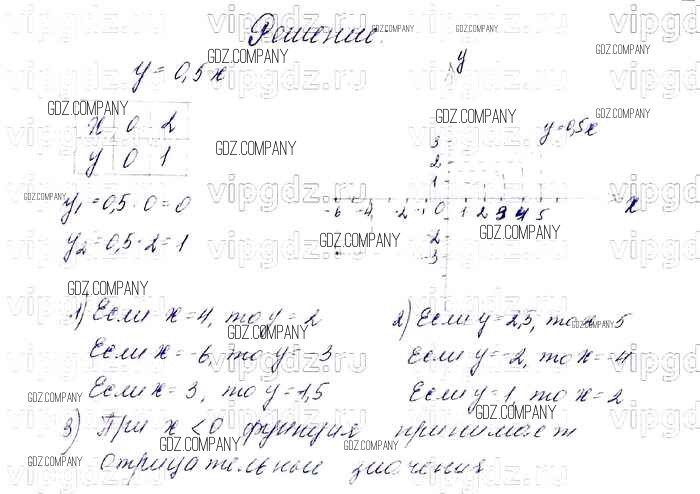 Решение:
y = 0,5x
x 0 2
y 0 1
y₁ = 0,5 · 0 = 0
y₂ = 0,5 · 2 = 1
y
y = 0,5x
3
2
1
-6 -4 -2 -1 0 1 2 3 4 5 x
-2
-3
1) Если x = 4, то y = 2
Если x = -6, то y = -3
Если x = 3, то y = 1,5
2) Если y = 2,5, то x = 5
Если y = -2, то x = -4
Если y = 1, то x = 2
3) При x < 0 функция принимает
отрицательные значения
GDZ.COMPANY
vipgdz.ru